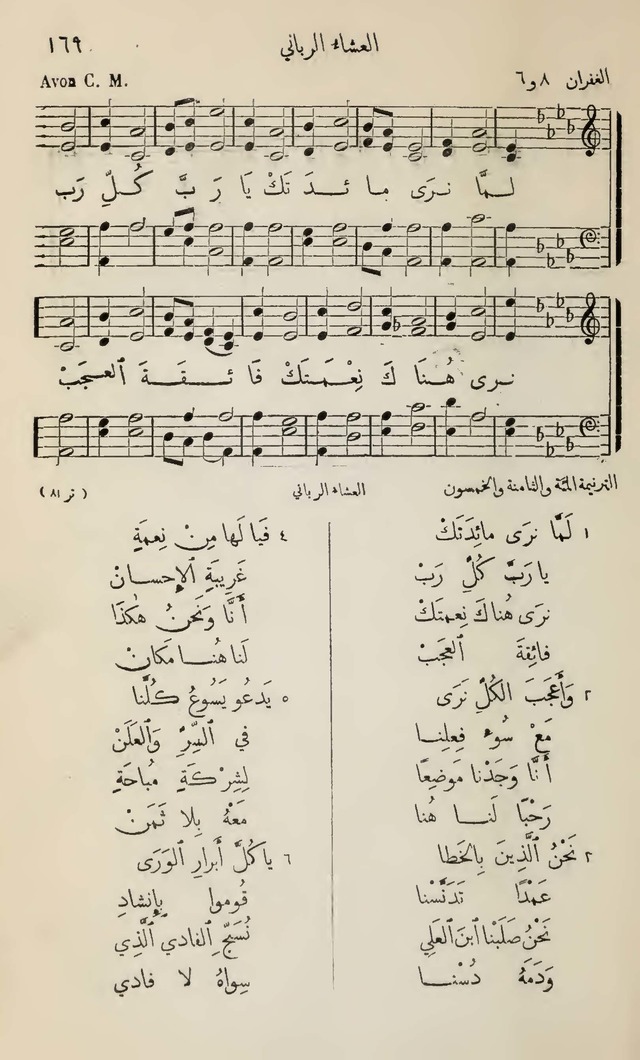 العشاء الرباني ١٦٩
الغفران ٨ و٦ Avon C. M.
لــمَّا نـرَى مـا ئــدَ تَكْ يَا رَ بَّ كُــلِّ رَب
نـرى هُـنَا كَ نِعْـمَـتَكْ فَا ئــقَــةَ العـجَبْ
الترنيمة المئة والثامنة والخمسون العشاء الرباني (تر ٨١)
١ لَمَّا نرَى مائِدَتَكْ
يا رَبَّ كُلِّ رَبْ
نرَى هُناكَ نِعمتَكْ
فائِقةَ العجَبْ
٢ وَأَعجَبَ الكُلِّ نَرَى
مَعْ سُوءِ فِعلِنــا
أَنَّا وَجَدْنا مَوضِعًا
رَحْبًا لَنــا هُنا
٣ نَحْنُ الَّذِينَ بِالخَطا
عَمْدًا تَدَنَّسْنا
نَحْنُ صَلَبْنا ابنَ العَلِي
وَدَمَهُ دُسْنــا
٤ فَيا لَها مِنْ نِعمَةٍ
غَرِيبَةِ الإِحســانْ
أَنَّا وَنَحنُ هٰكَذَا
لَنا هُنــا مَكَانْ
٥ يَدعُو يَسُوعُ كُلَّنا
في السِّرِّ وَالعَلَنْ
لِشِرْكَةٍ مُباحَةٍ
مَعْهُ بِلا ثَمَنْ
٦ يا كُلَّ أَبرارِ الوَرَى
قُوموا بِإِنشادِ
نُسَبِّحِ الفادي الَّذِي
سِواهُ لا فادي